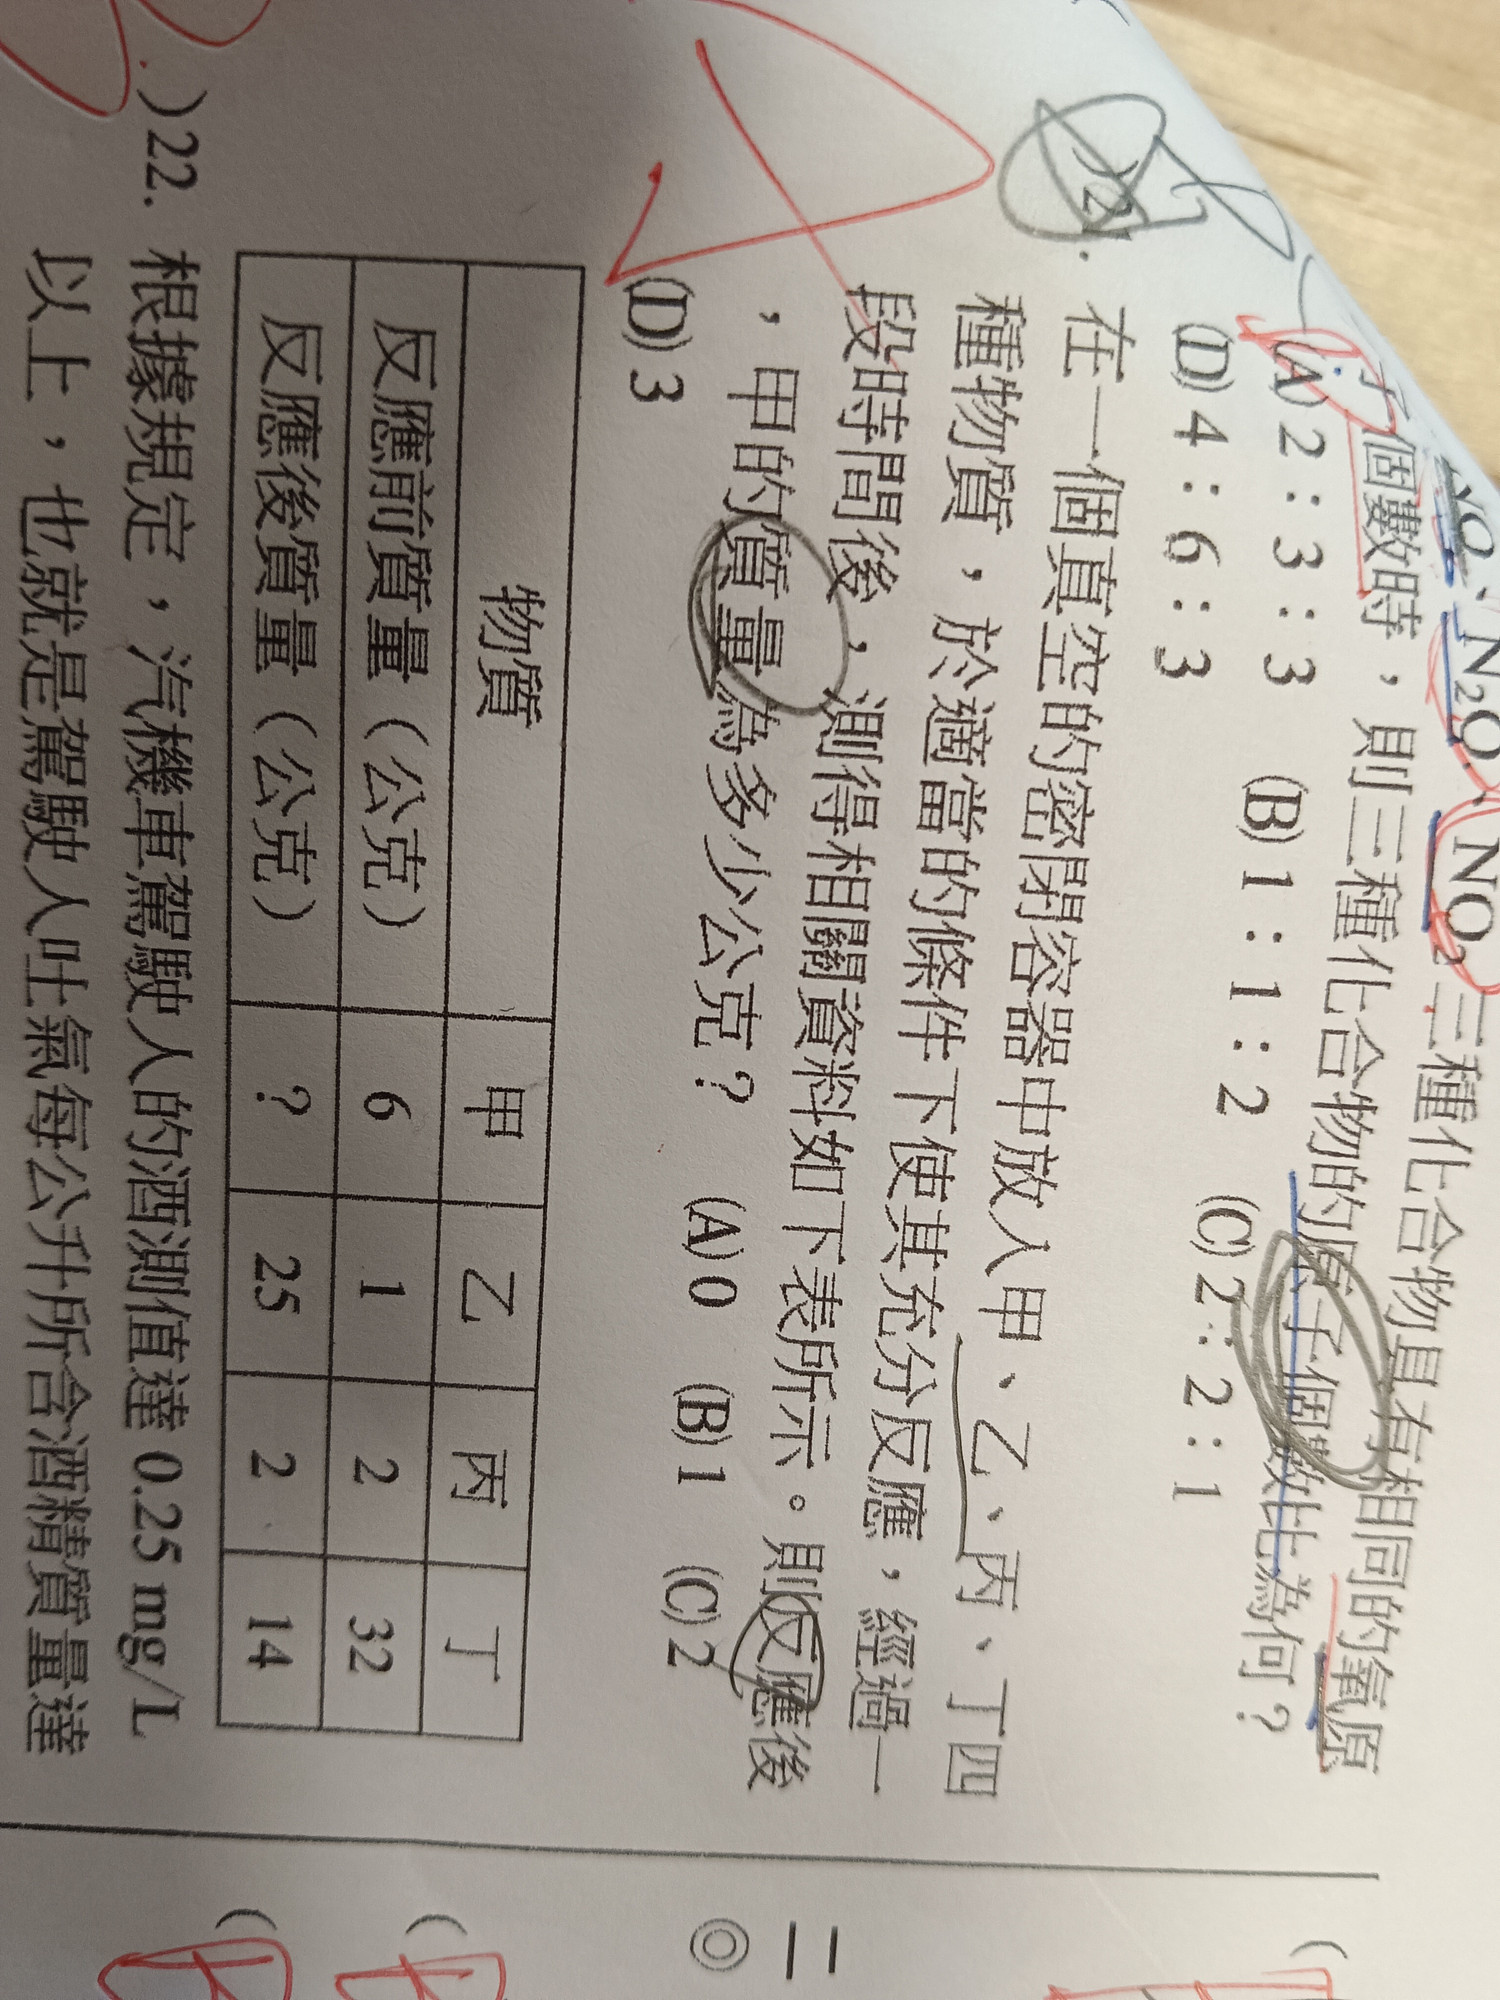 N₂O、NO₂三種化合物具有相同的氧原
子個數時，則三種化合物的原子個數比為何？
(A) 2：3：3 (B) 1：1：2 (C) 2：2：1
(D) 4：6：3
)21. 在一個真空的密閉容器中放入甲、乙、丙、丁四
種物質，於適當的條件下使其充分反應，經過一
段時間後，測得相關資料如下表所示。則反應後
，甲的質量為多少公克？ (A) 0 (B) 1 (C) 2
(D) 3
物質 甲 乙 丙 丁
反應前質量（公克） 6 1 2 32
反應後質量（公克） ？ 25 2 14
)22. 根據規定，汽機車駕駛人的酒測值達 0.25 mg/L
以上，也就是駕駛人吐氣每公升所含酒精質量達
二
◎